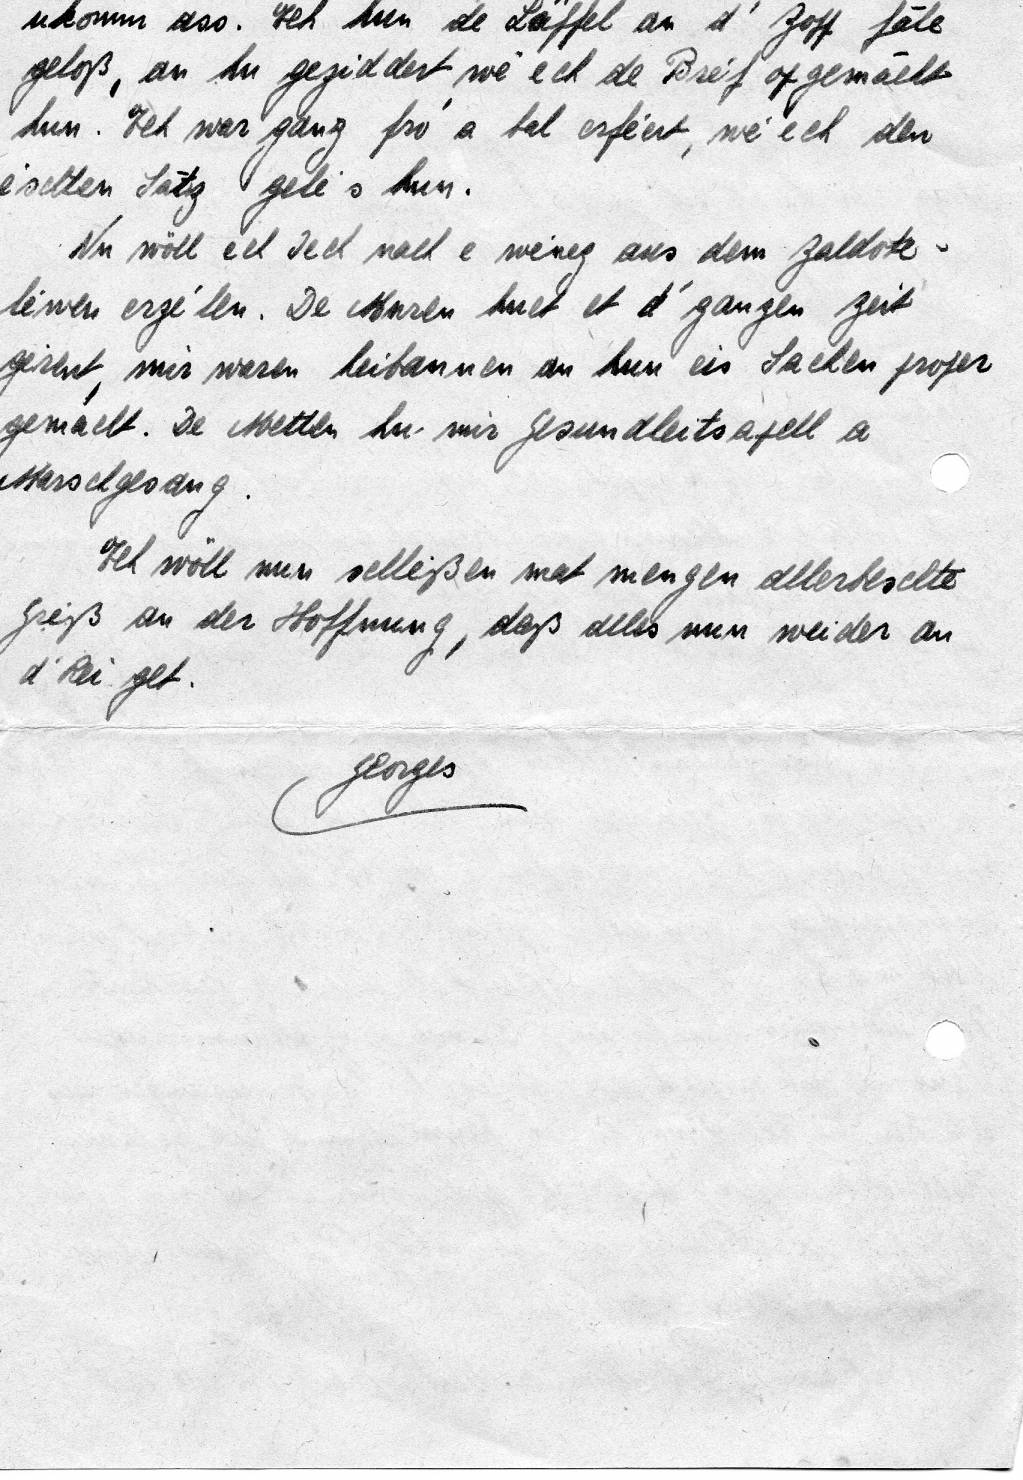 ukomm ass. Ech hun de Läffel an d' Zopp fále
geloß, an hu geziddert wé ech de Bréif opgemácht
hun. Ech war ganz fró a bal erfèert, wé ech den
éischten Satz gelies hun.
Nu wöll ech Dech nach e wéineg aus dem Zaldote-
léiwen erzélen. De Muren huet et d' ganzen Zeit
gerent, mir waren heibannen an hun eis Sachen proper
gemácht. De Metten hu mir Gesundheitsapell a
Marschgesang.
Ech wöll nun schleißen mat mengen allerbeschte
Greiß an der Hoffnung, daß alles nun weider an
d' Rei get.
Georges